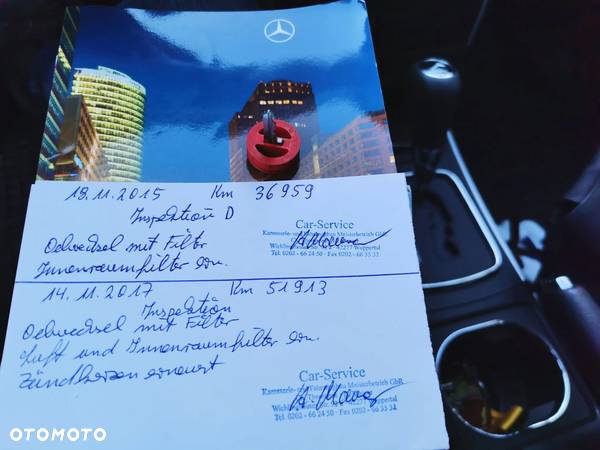 18.11.2015 Km 36959
Inspektion D
Oelwechsel mit Filter
Innenraumfilter ern.
Car-Service
Meisterbetrieb GbR
42277 Wuppertal
Tel: 0202 - 66 24 50 · Fax 0202 - 66 35 32
14.11.2017 Km 51913
Inspektion
Oelwechsel mit Filter
Luft und Innenraumfilter ern.
Zündkerzen erneuert
Car-Service
Karosserie- und Meisterbetrieb GbR
42277 Wuppertal
Tel: 0202 - 66 24 50 · Fax 0202 - 66 35 32
OTOMOTO